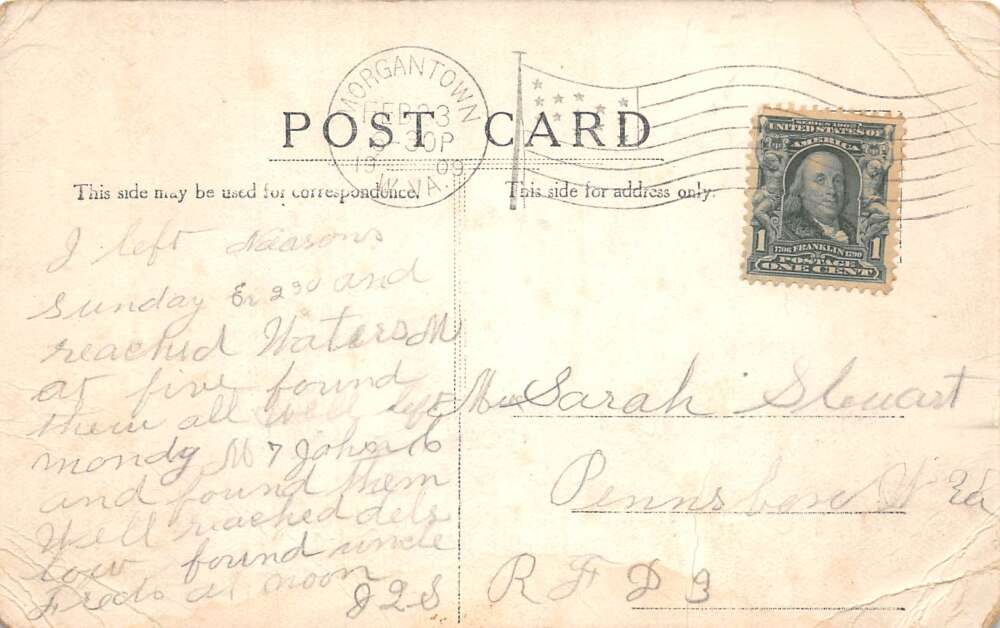 MORGANTOWN
FEB 23
30P
1909
W. VA.
POST CARD
This side may be used for correspondence.
This side for address only.
SERIES 1902
UNITED STATES OF
AMERICA
1 1706 FRANKLIN 1790 1
POSTAGE
ONE CENT
I left Neasons
Sunday Ev 2 30 and
reached Waters M
at five found
them all well left
mondy M 7 John 6
and found them
Well reached dels
low found uncle
Freds at noon
J 2 S
Sarah Stewart
Pennsboro W Va
R F D 3